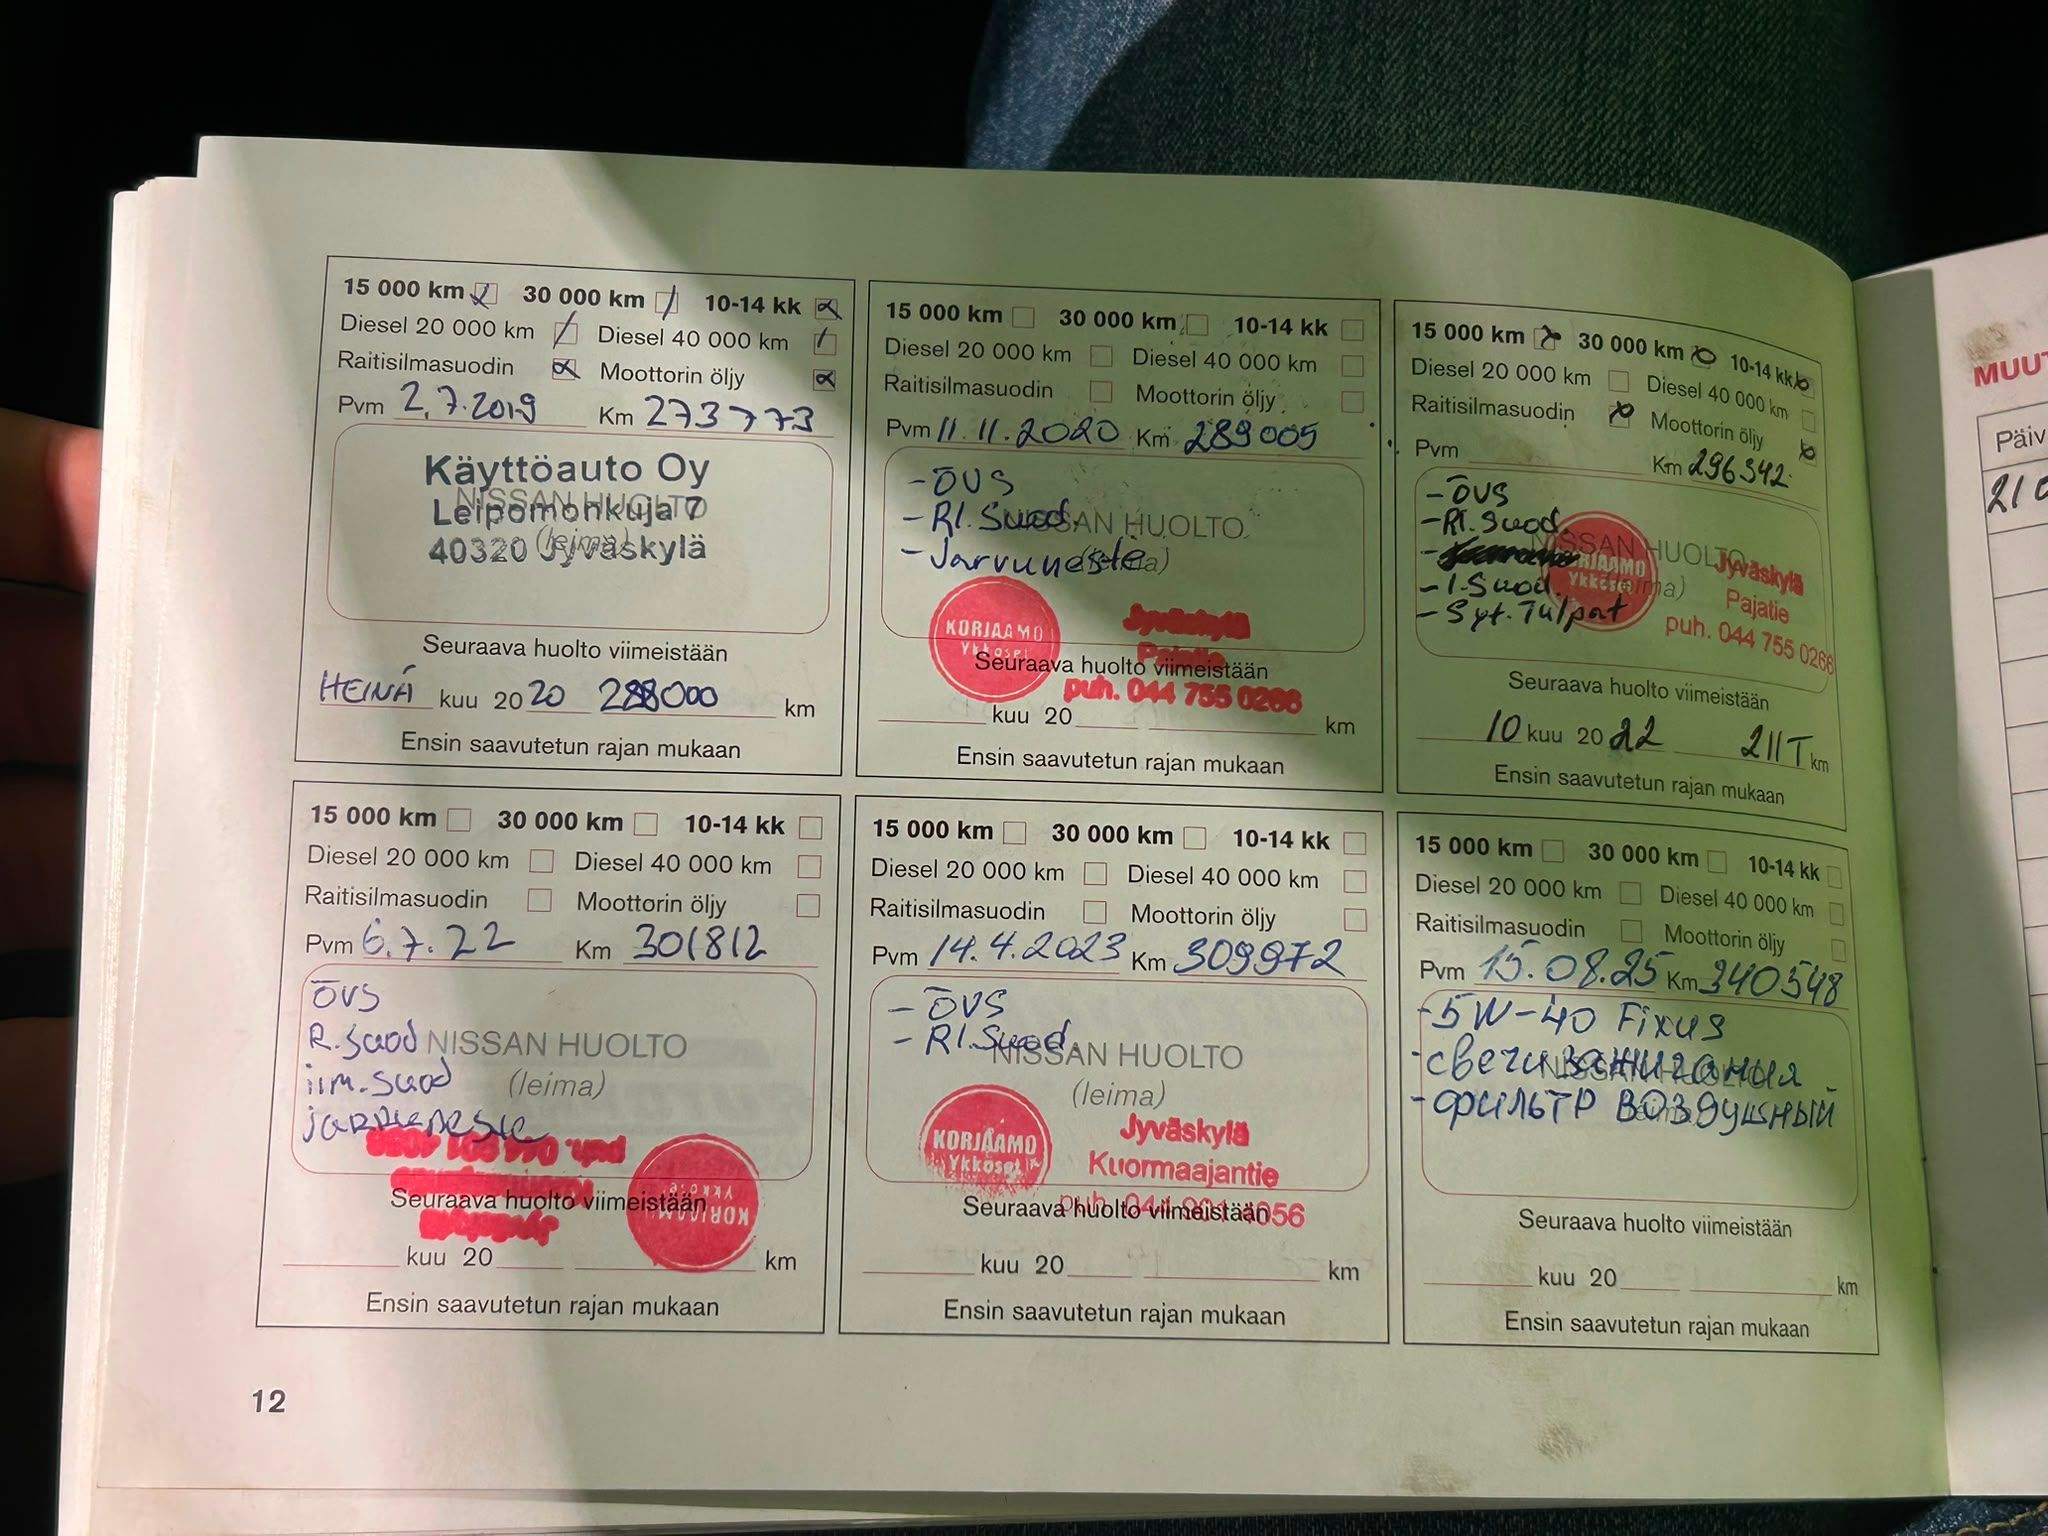 15 000 km 30 000 km 10-14 kk
Diesel 20 000 km Diesel 40 000 km
Raitisilmasuodin Moottorin öljy
Pvm 2.7.2019 Km 273773
Käyttöauto Oy
NISSAN HUOLTO
Leipomonkuja 7
(leima)
40320 Jyväskylä
Seuraava huolto viimeistään
HEINÄ kuu 20 20 288000 km
Ensin saavutetun rajan mukaan
15 000 km 30 000 km 10-14 kk
Diesel 20 000 km Diesel 40 000 km
Raitisilmasuodin Moottorin öljy
Pvm 11.11.2020 Km 289005
- ÖVS
- RI. Suod.
NISSAN HUOLTO
- Jarruneste
(leima)
KORJAAMO
Ykköset
Jyväskylä
Pajatie
puh. 044 755 0266
Seuraava huolto viimeistään
kuu 20 km
Ensin saavutetun rajan mukaan
15 000 km 30 000 km 10-14 kk
Diesel 20 000 km Diesel 40 000 km
Raitisilmasuodin Moottorin öljy
Pvm Km 296342
- ÖVS
- RI. Suod
NISSAN HUOLTO
(leima)
- I. Suod.
- Syt. Tulpat
KORJAAMO
Ykköset
Jyväskylä
Pajatie
puh. 044 755 0266
Seuraava huolto viimeistään
10 kuu 20 22 211T km
Ensin saavutetun rajan mukaan
15 000 km 30 000 km 10-14 kk
Diesel 20 000 km Diesel 40 000 km
Raitisilmasuodin Moottorin öljy
Pvm 6.7.22 Km 301812
ÖVS
R. Suod
NISSAN HUOLTO
iim. Suod
(leima)
jarruneste
KORJAAMO
Ykköset
Seuraava huolto viimeistään
kuu 20 km
Ensin saavutetun rajan mukaan
15 000 km 30 000 km 10-14 kk
Diesel 20 000 km Diesel 40 000 km
Raitisilmasuodin Moottorin öljy
Pvm 14.4.2023 Km 309972
- ÖVS
- RI. Suod.
NISSAN HUOLTO
(leima)
KORJAAMO
Ykköset
Jyväskylä
Kuormaajantie
Seuraava huolto viimeistään
kuu 20 km
Ensin saavutetun rajan mukaan
15 000 km 30 000 km 10-14 kk
Diesel 20 000 km Diesel 40 000 km
Raitisilmasuodin Moottorin öljy
Pvm 15.08.25 Km 340548
- 5W-40 Fixus
- свечи зажигания
NISSAN HUOLTO
- фильтр воздушный
Seuraava huolto viimeistään
kuu 20 km
Ensin saavutetun rajan mukaan
12